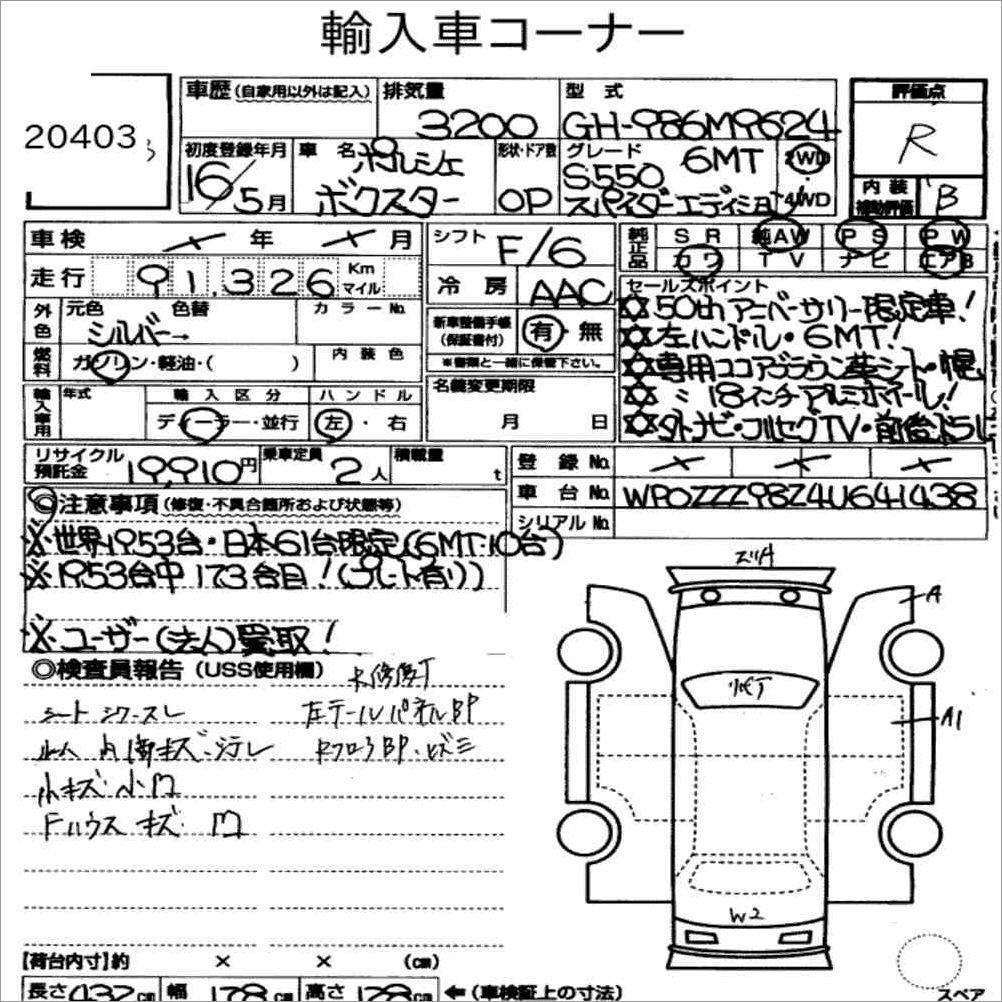 輸入車コーナー
20403
3
車歴 (自家用以外は記入)
排気量
3200
型式
GH-986M9624
評価点
R
初度登録年月
16/5月
車名
ポルシェ
ボクスター
形状・ドア数
OP
グレード
S550 6MT
スパイダーエディション
2WD
4WD
内装
補助評価
B
車検 年 月
シフト
F/6
純正品
SR 純AW PS PW
カワ TV ナビ エアB
走行 91,326 Km マイル
冷房
AAC
セールスポイント
50thアニバーサリー限定車!
左ハンドル・6MT!
専用ココアブラウン革シート・幌
〃 18インチアルミホイール!
外ナビ・フルセグTV・前後ドラレ
外色
元色 色替
シルバー→
カラーNo.
新車整備手帳
(保証書付)
有・無
※書類と一緒に保管下さい。
燃料
ガソリン・軽油・( )
内装色
名義変更期限
月 日
輸入車用
年式
輸入区分
ディーラー・並行
ハンドル
左・右
リサイクル
預託金
19,910円
乗車定員
2人
積載量
t
登録No.
車台No.
WP0ZZZ98Z4U641438
シリアルNo.
◎注意事項 (修復・不具合箇所および状態等)
※世界1953台・日本61台限定(6MT10台)
※1953台中173台目!(プレート有り)
※ユーザー(法人)買取!
◎検査員報告 (USS使用欄)
シート シワ・スレ
左テールパネルBP
ルーム 内 キズ・汚レ
小キズ・小凹
Fハウス キズ 凹
A
A1
W2
【荷台内寸】約 × × (cm)
長さ 432cm 幅 178cm 高さ 128cm ←(車検証上の寸法)
スペア